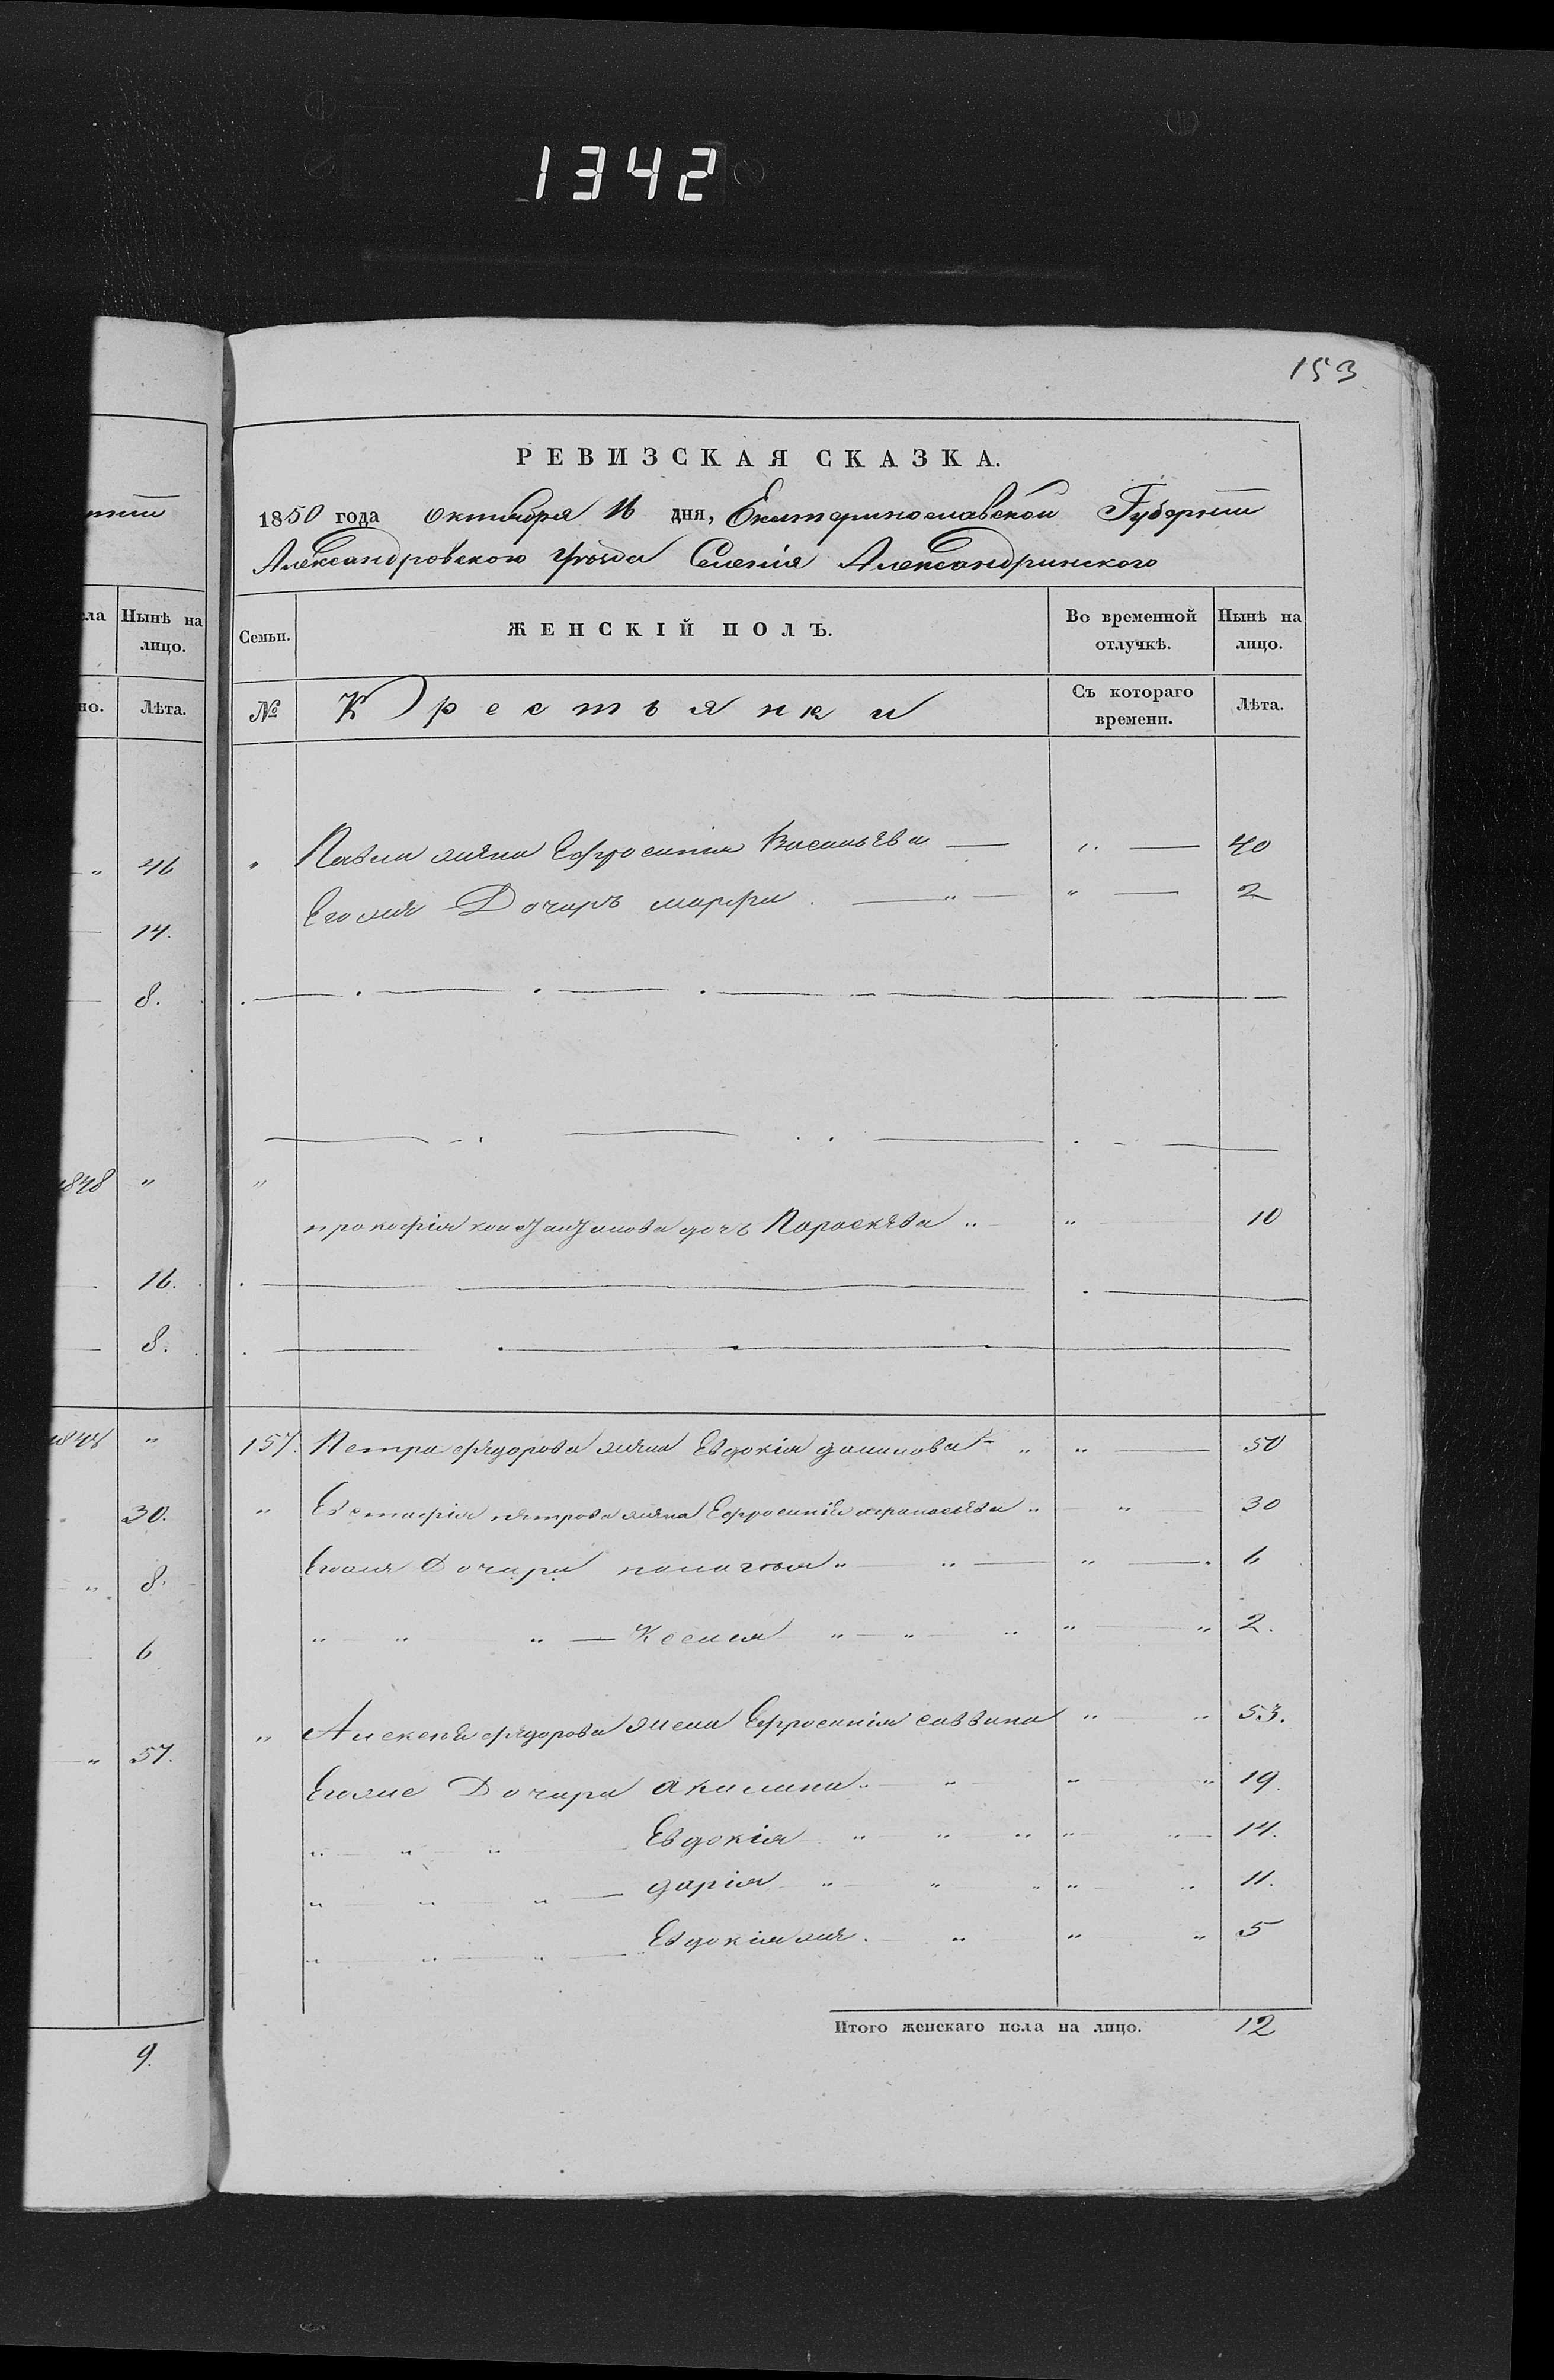 1342
153
РЕВИЗСКАЯ СКАЗКА.
1850 года октября 16 дня, Екатеринославской Губернии
Александровского уѣзда Селенія Александринского
ла Нынѣ на лицо.
но. Лѣта.
Семьи. ЖЕНСКІЙ ПОЛЪ. Во временной отлучкѣ. Нынѣ на лицо.
№ Крестьянки Съ котораго времени. Лѣта.
" 46
14.
8.
1848 "
16.
8.
1848 "
30.
" 8.
6
" 57.
9.
" Павла жена Ефросинія Васильева " 40
Егожя Дочерь марфа " " 2
"
прокофія дочь Параскева " " 10
157. Петра федорова жена Евдокія " " 50
" Евстафія петрова жена Ефросинія афанасьева " " 30
Егожя Дочери палагия " " " 6
" " " Ксения " " " " " 2.
" Алексея федорова жена Ефросинія саввина " " 53.
Егоже Дочери акилина " " " " 19.
" " " Евдокія " " " " " 14.
" " " дарія " " " " " 11.
" " " Евдокія же " " " 5
Итого женскаго пола на лицо. 12